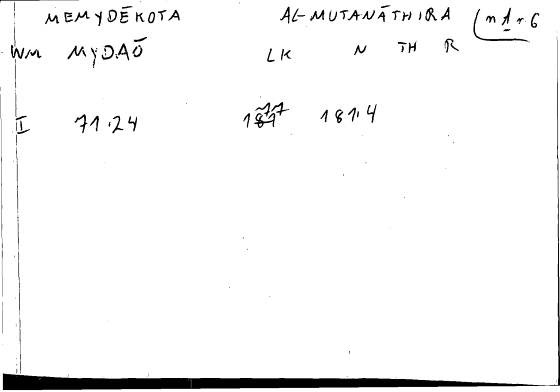 MEMYDĒKOTA AL-MUTANĀTHIRA
WM MYDAŌ LK N TH R
I 71.24 181.4